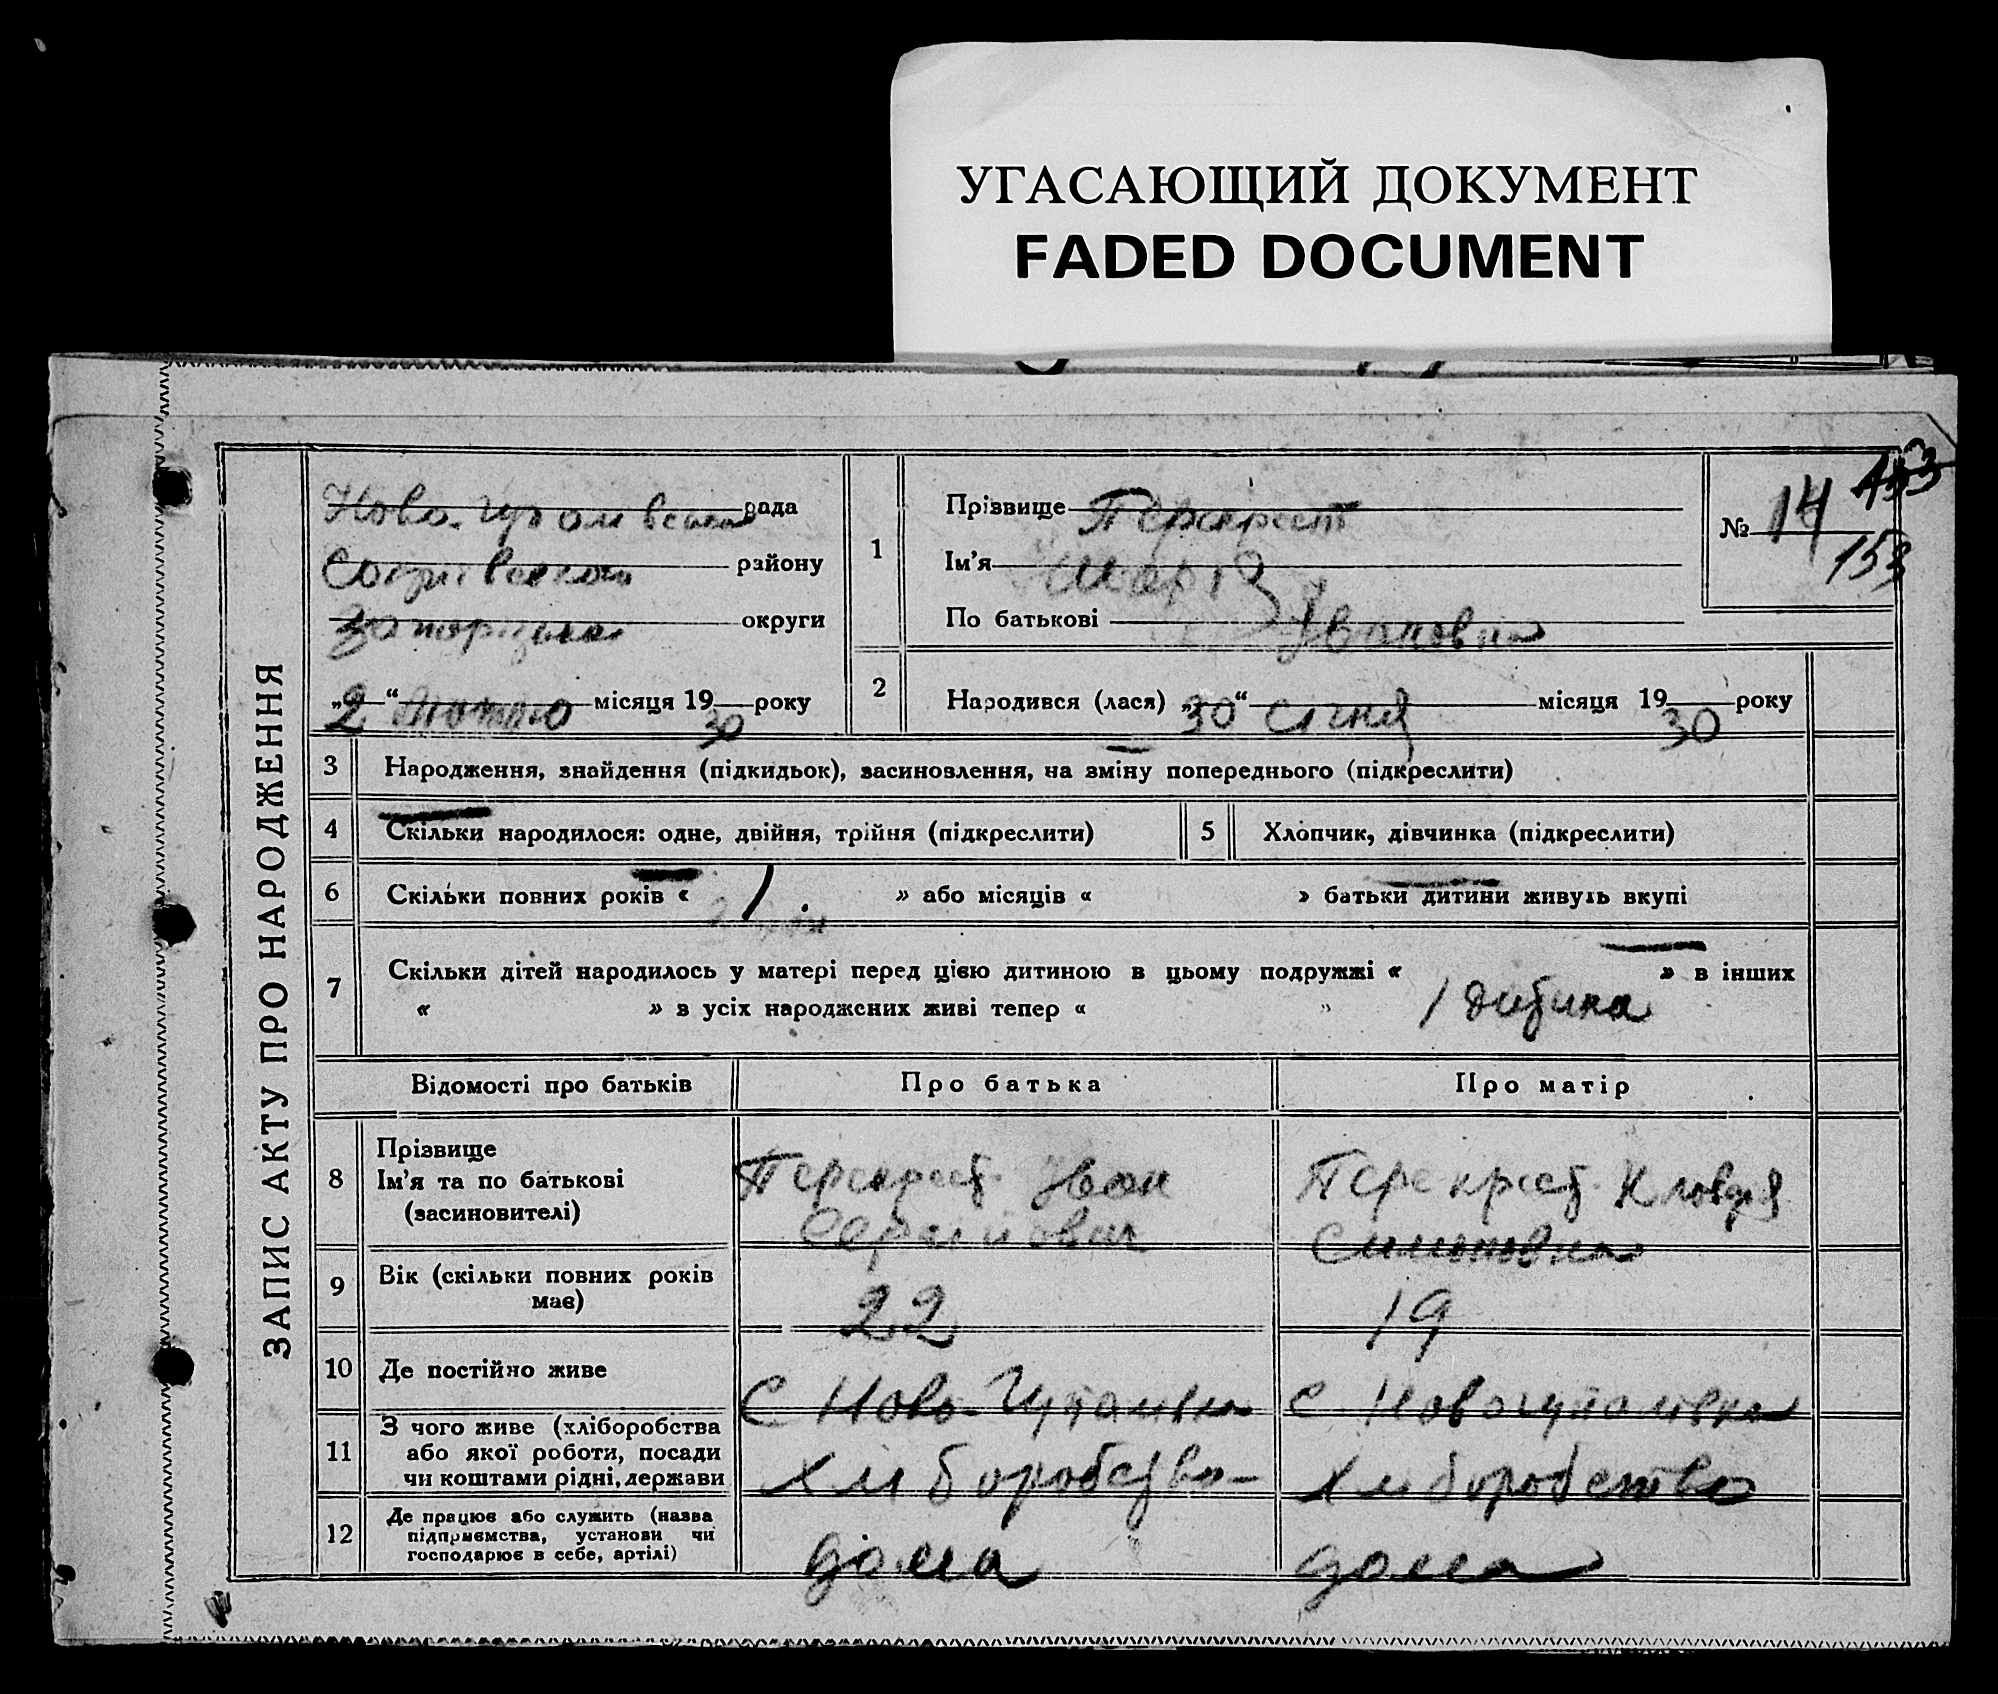 УГАСАЮЩИЙ ДОКУМЕНТ
FADED DOCUMENT
ЗАПИС АКТУ ПРО НАРОДЖЕННЯ
рада
району
округи
„2“ лютого місяця 1930 року
1
Прізвище Перекрест
Ім'я Марія
По батькові Івановна
№ 14
153
153
2
Народився (лася) „30“ січня місяця 1930 року
3 Народження, знайдення (підкидьок), засиновлення, на зміну попереднього (підкреслити)
4 Скільки народилося: одне, двійня, трійня (підкреслити)
5 Хлопчик, дівчинка (підкреслити)
6 Скільки повних років « 1 » або місяців « » батьки дитини живуть вкупі
7 Скільки дітей народилось у матері перед цією дитиною в цьому подружжі « 1 дитина » в інших
« » в усіх народжених живі тепер « »
Відомості про батьків Про батька Про матір
8 Прізвище
Ім'я та по батькові
(засиновителі)
Перекрест Іван
Сергійович
Перекрест Клавдія
Симоновна
9 Вік (скільки повних років має) 22 19
10 Де постійно живе С Ново-Гупалівка с. Новогупалівка
11 З чого живе (хліборобства
або якої роботи, посади
чи коштами рідні, держави
Хліборобство Хліборобство
12 Де працює або служить (назва
підприємства, установи чи
господарює в себе, артілі)
дома дома